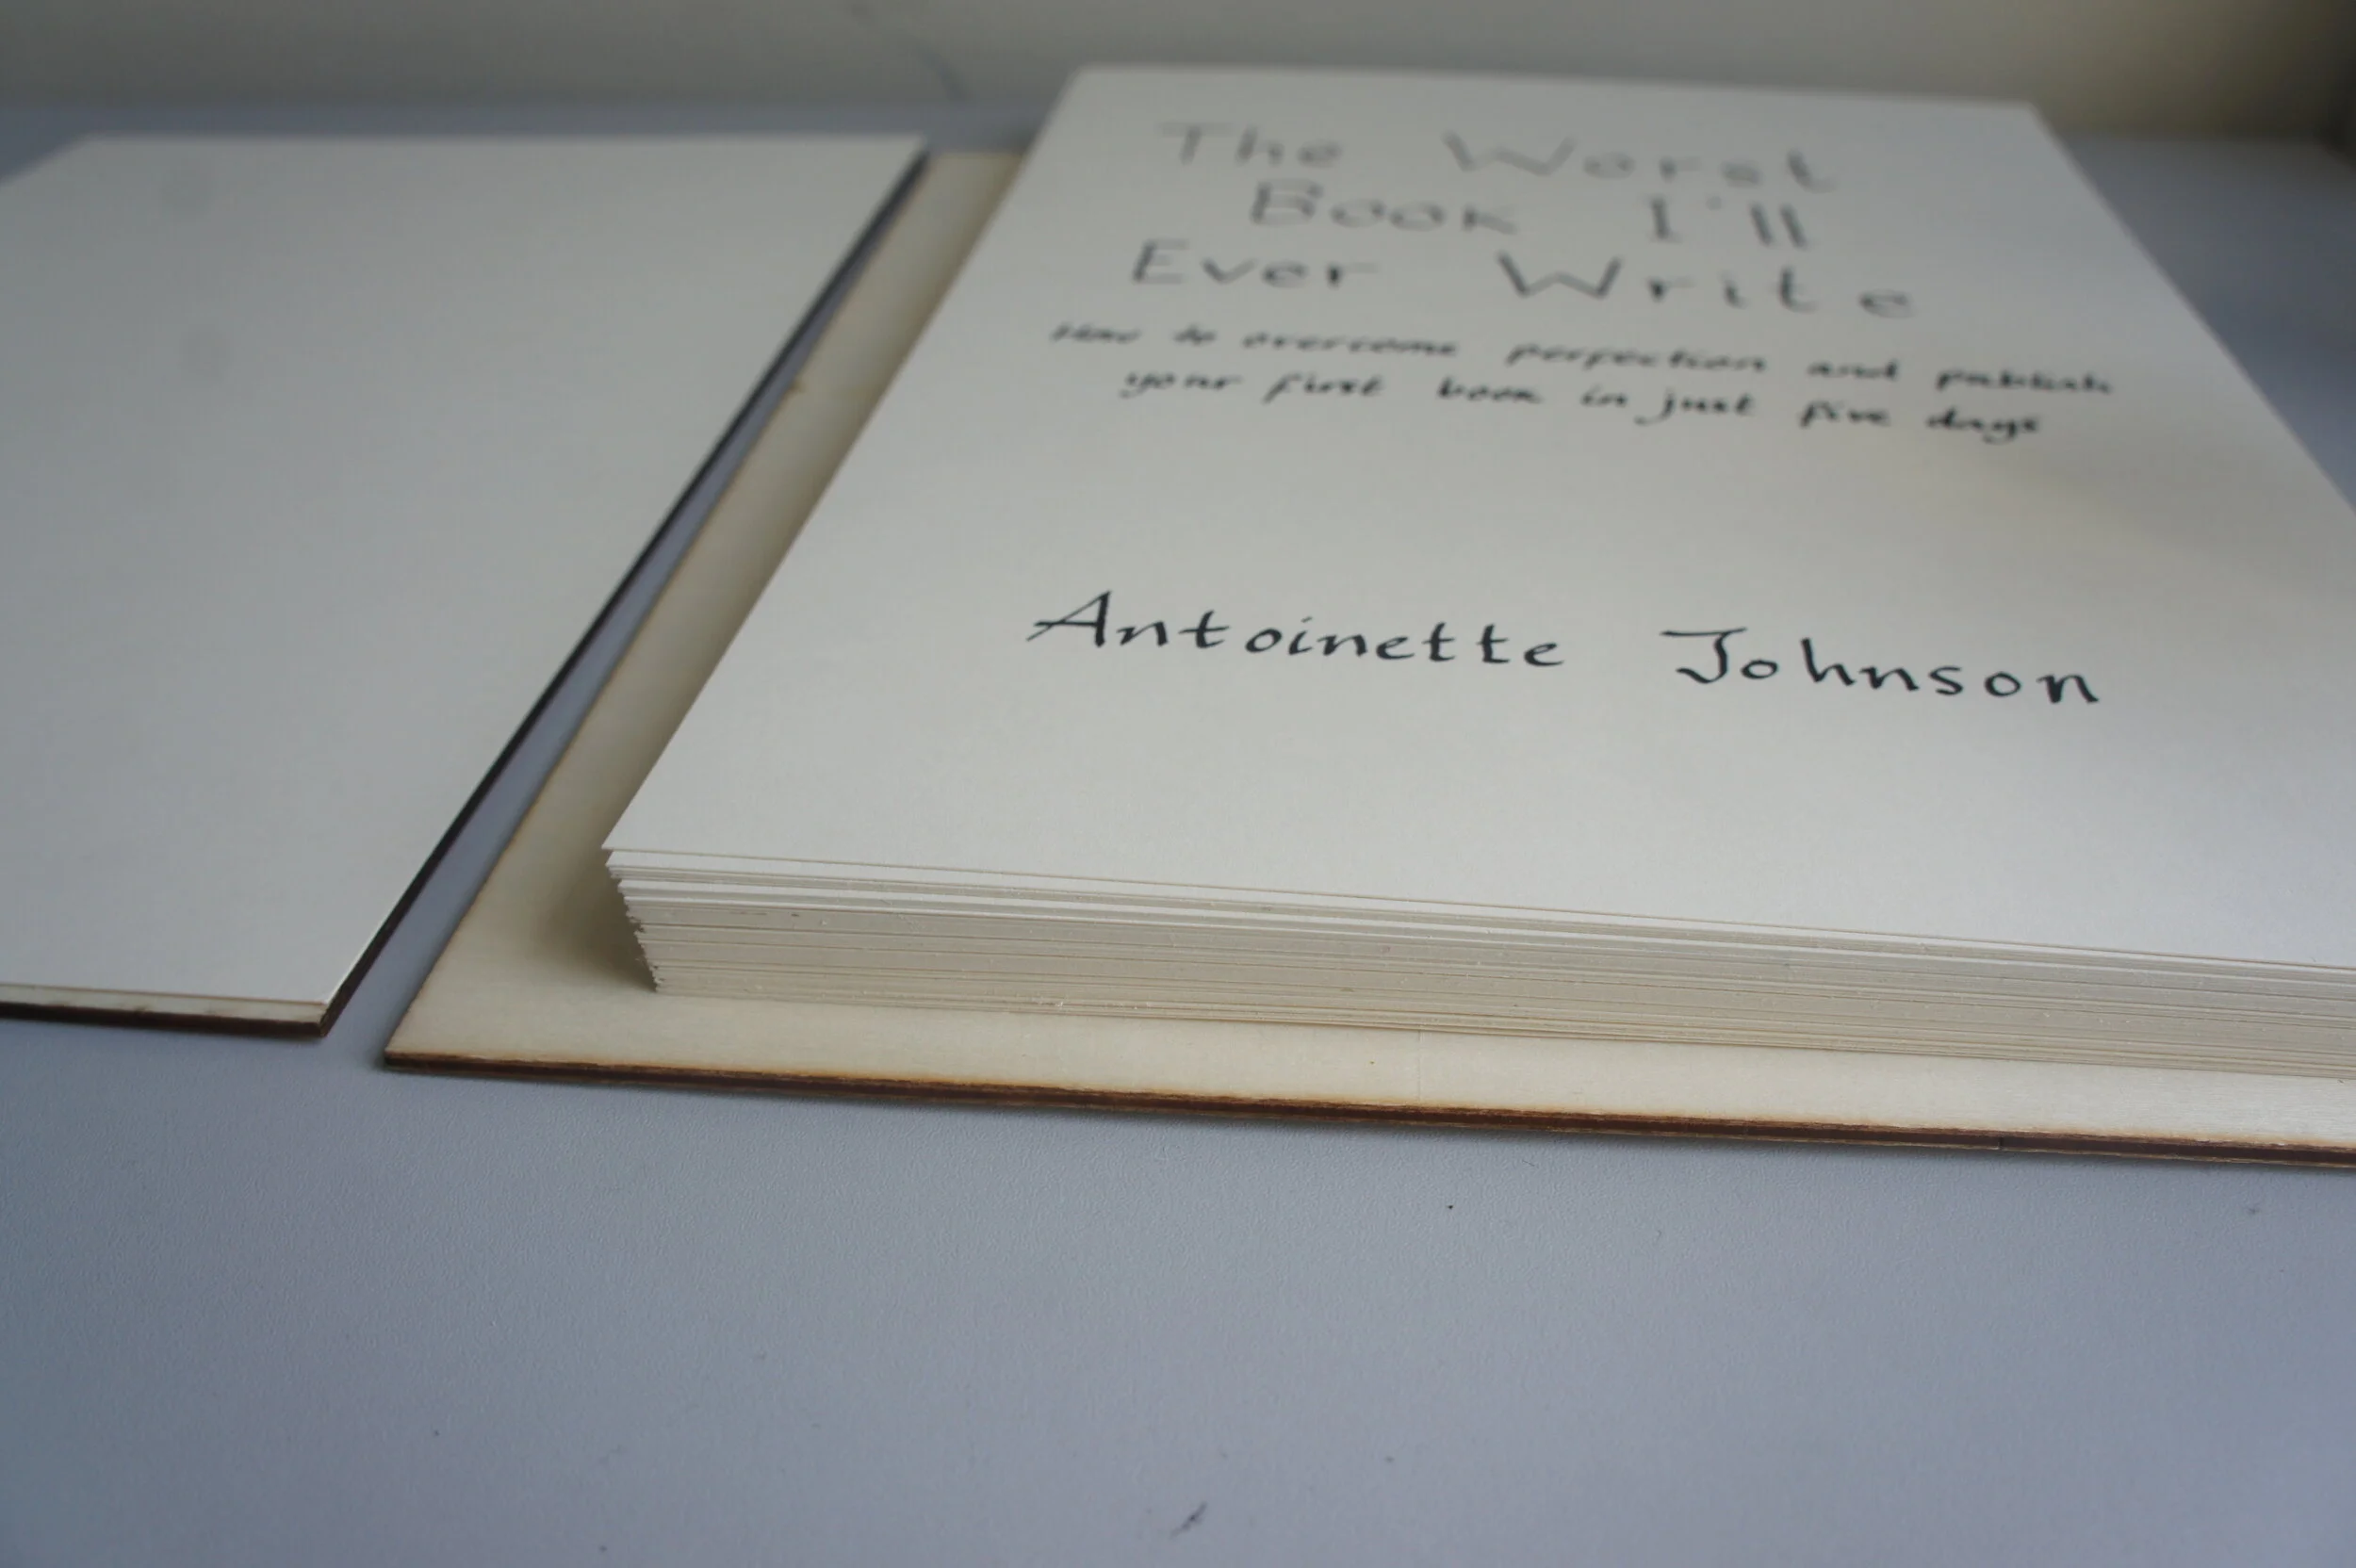 The Worst
Book I'll
Ever Write
How to overcome perfection and publish
your first book in just five days
Antoinette Johnson